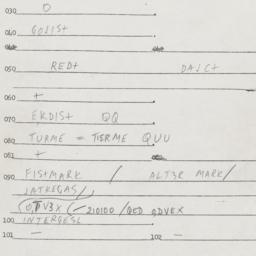 030 O
040 GOJIST
050 RED+ DAJC+
060 +
070 EKDIST QQ
080 TURME = TERME QUU
081 +
090 FISTMARK / ALT3R MARK/
INTREGAS/
210100/QED QDVEX
100 INTERGESL
101 — 102 —